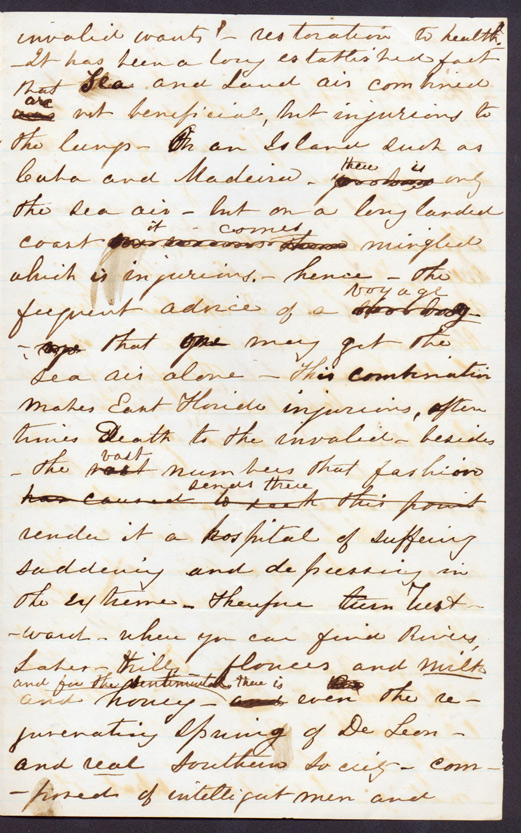 invalid wants! - restoration to health!
- It has been a long established fact
that Sea and Land air combined
are
not beneficial, but injurious to
the lungs - On an Island such as
there is
Cuba and Madeira - only
the sea air - but on a long landed
it comes
coast mingled
which is injurious - hence - the
voyage
frequent advice of a
- that one may get the
sea air alone - This combination
makes East Florida injurious, often
times Death to the invalid - besides
vast
- the vast numbers that fashion
sends there
has caused to seek this point
render it a hospital of suffering
saddening and depressing in
the extreme - Therefore turn West-
-ward - where you can find Rivers,
Lakes - Hills, flowers and milk
and for the sentimental there is
and honey - and even the re-
juvenating Spring of De Leon -
and real Southern Society - com-
-posed of intelligent men and